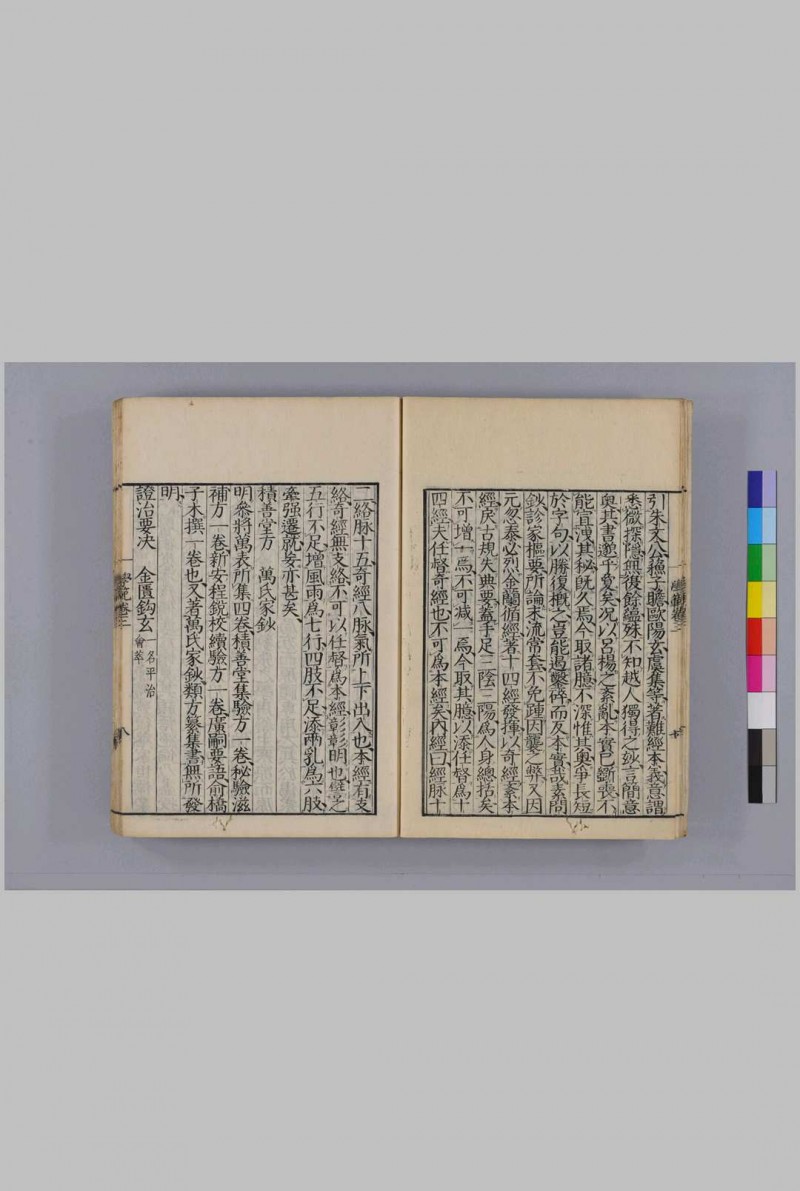 引朱文公蘓子瞻歐陽玄虞集等著難經本義意謂
悉微探隱無復餘蘊殊不知越人獨得之玅言簡意
奥其書邈乎夐矣况以呂楊之紊亂本實已斵喪不
能宣洩其秘既久焉今取諸臆不深惟其奥爭長短
於字句以勝復概之豈能遏鑿碎而及本實哉素問
鈔診家樞要所論末流常套不免踵因襲之弊又因
元忽泰必烈金蘭循經著十四經發揮以奇經紊本
經戾古規失典要蓋手足三陰三陽爲人身總括矣
不可增一焉不可减一焉今取其臆以添任督爲十
四經夫任督奇經也不可爲本經矣内經曰經脉十
二絡脉十五奇經八脉氣所上下出入也本經有支
絡奇經無支絡不可以任督爲本經彰彰明也譬之
五行不足增風雨爲七行四肢不足添兩乳爲六肢
牽强遷就妄亦甚矣
積善堂方 萬氏家鈔
明叅將萬表所集四卷積善堂集驗方一卷秘驗滋
補方一卷新安程鋭校續驗方一卷廣嗣要語俞橋
子木撰一卷也又著萬氏家鈔類方纂集書無所發
明
證治要决 金匱鈎玄 一名平治
會萃
卷三
八